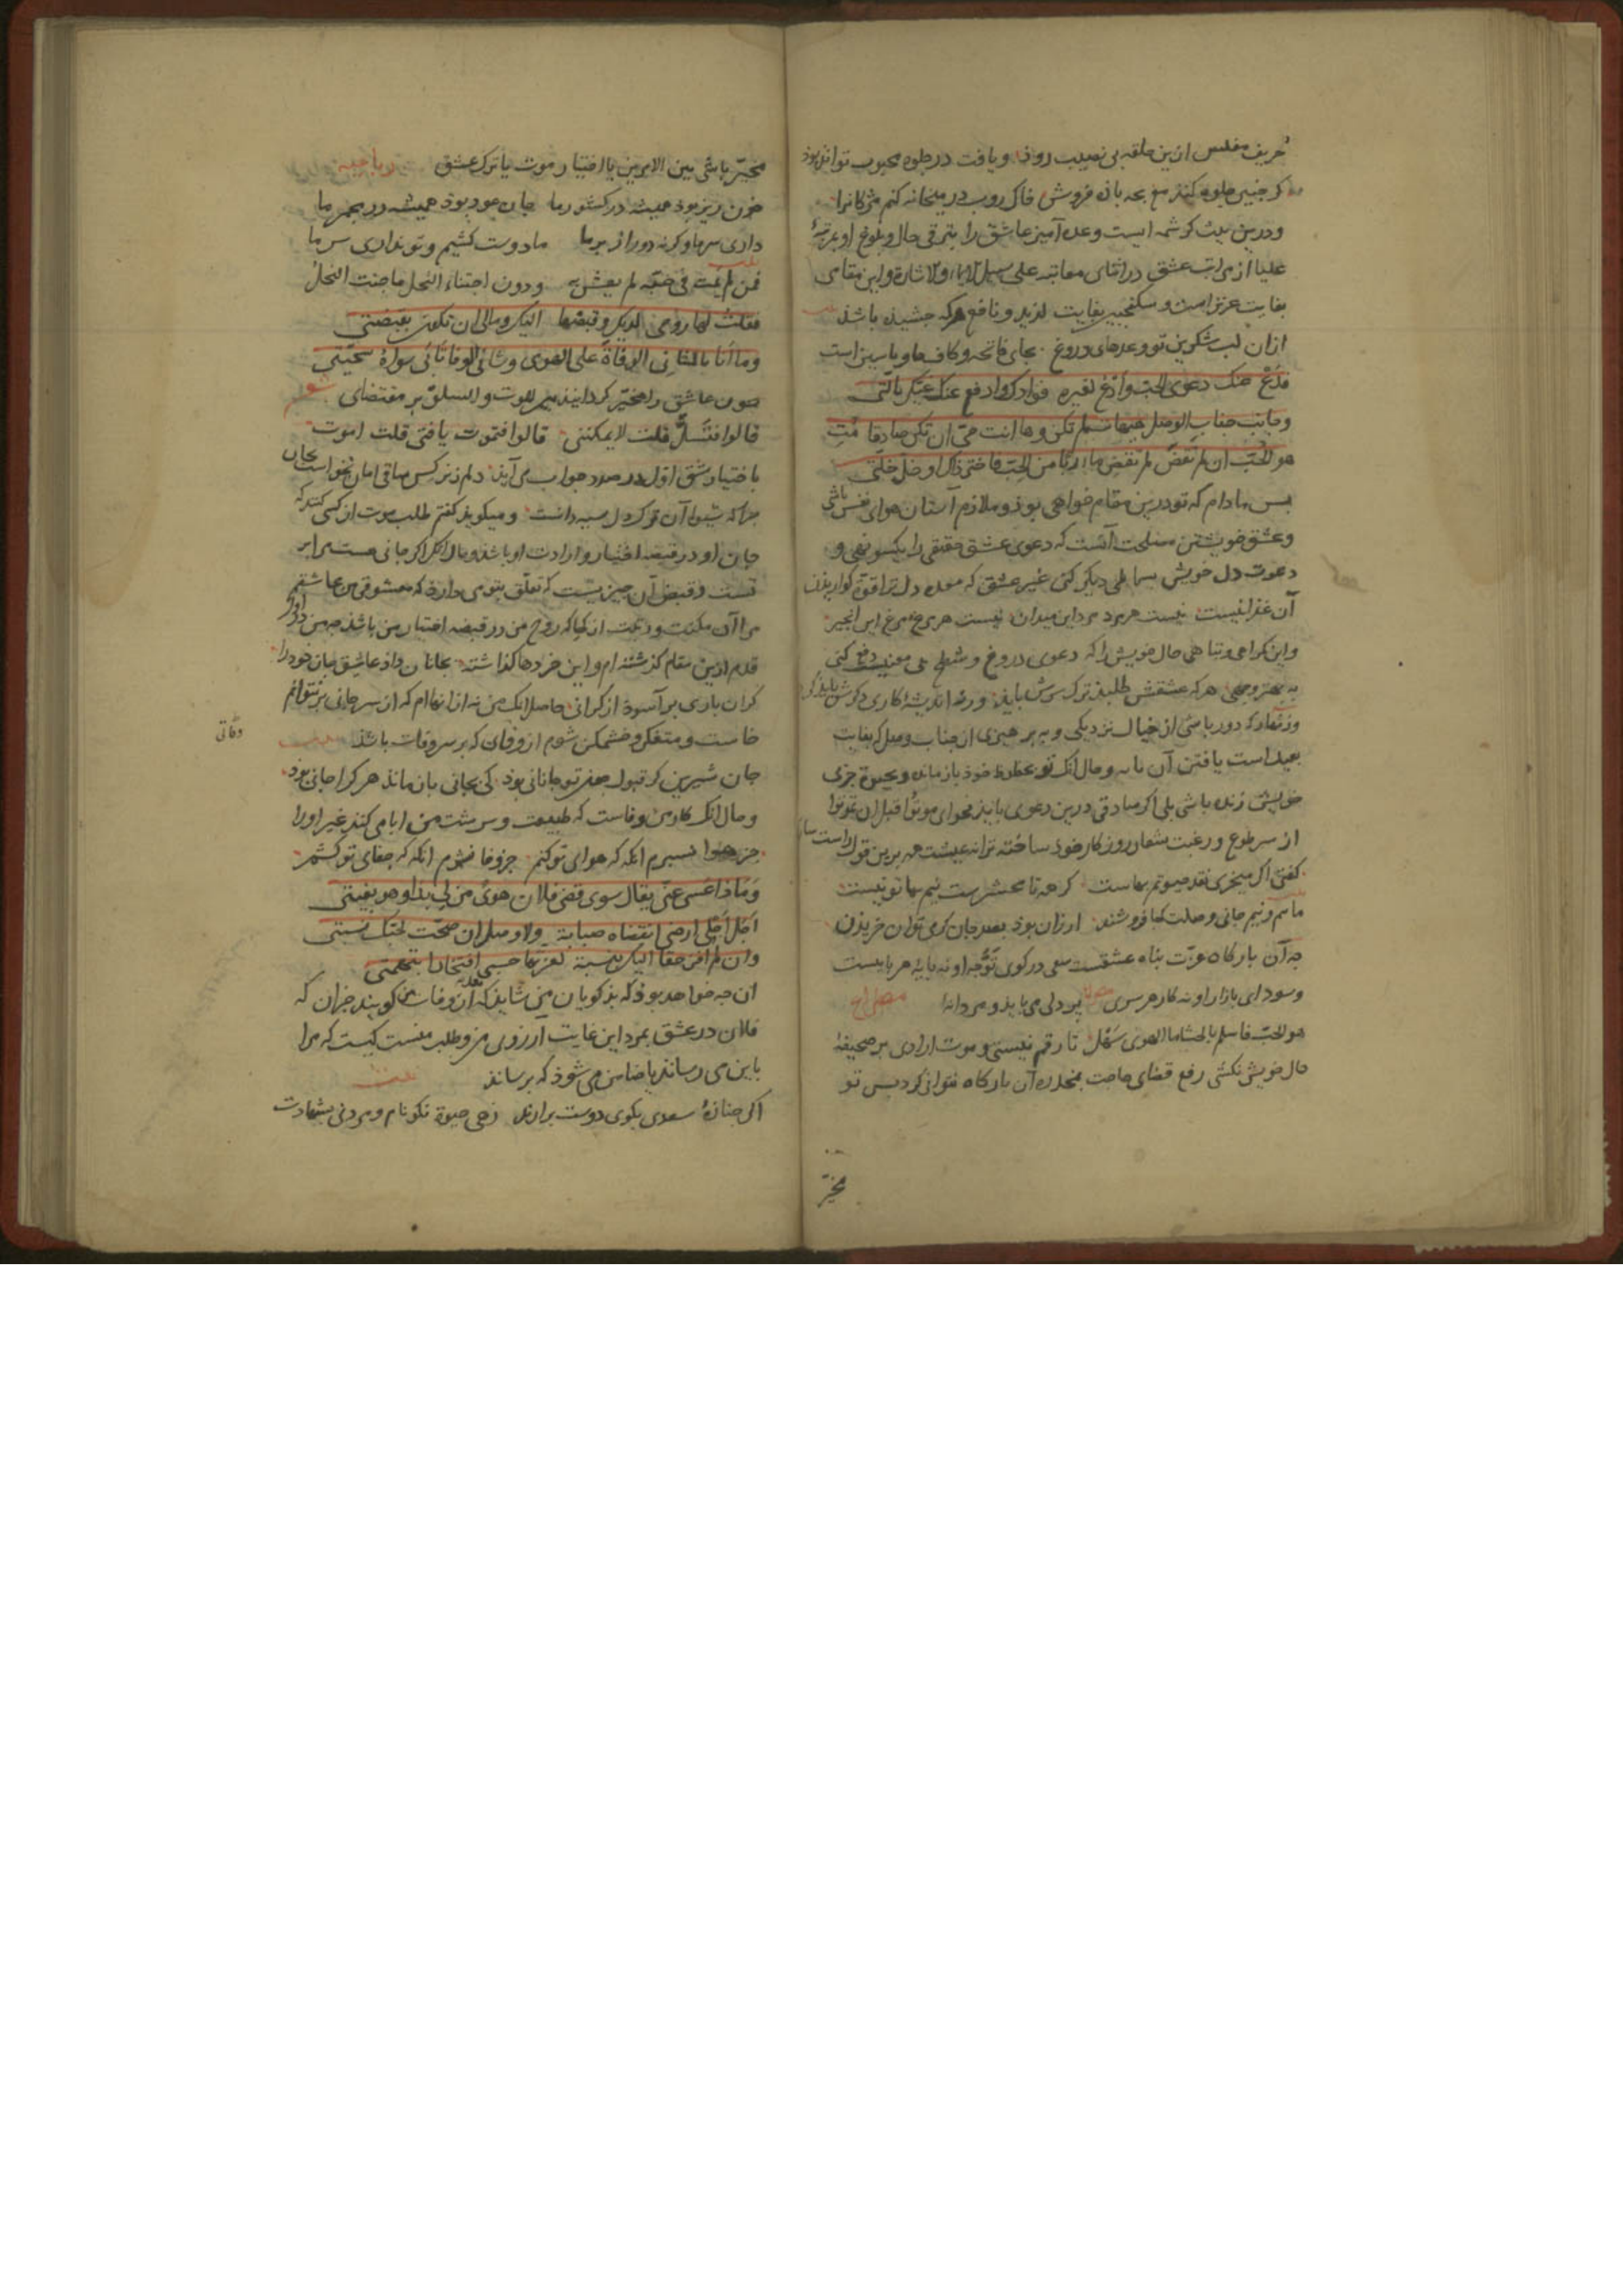 حریف مفلس ازین حلقه بی نصیب روذ و یافت در جلوه محبوب تواند بوذ
کر جنین جلوه کند مغ بجه باذه فروش خاک روب در میخانه کنم مژکانرا
و درین بیت کرشمه ایست وعده آمیز عاشق را بترقی حال و بلوغ او بمرتبهٔ
علیا از مراتب عشق در اثنای معاتبه علی سبیل الایماء والاشاره و این مقامی
بغایت عزیز است و سکنجبین بغایت لذیذ و نافع هرکه جشیذه باشد
ازان لب شکرین تو وعدهای دروغ بجای فاتحه و کاف ها و یاسین است
فدع عنک دعوی الحب وادع لغیره فوادک وادفع عنک غیک بالتی
وجانب جناب الوصل هیهات لم تکن وها انت حی ان تکن صادقا مت
هو الحب ان لم تقض لم تقض مأربا من الحب فاختر ذاک او خل خلتی
بس مادام که تو درین مقام خواهی بوذ و ملازم آستان هوای نفس باشی
و عشق خویشتن مصلحت آنست که دعوی عشق حقیقی را یکسو نهی و
دعوت دل خویش بسماطی دیکر کنی غیر عشق که معده دل ترا قوة کواریذن
آن غذا نیست نیست هر مرد مرد این میدان نیست هر مرغ مرغ این انجیر
و این کمراهی و تباهی حال خویش را که دعوی دروغ و شطح بی معنیست دفع کنی
به بهتر وجهی هرکه عشقش طلبذ ترک سرش بایذ ورنه اندیشهٔ کاری دکرش بایذ کرد
و زنهار که دور باشی از خیال نزدیکی و بپرهیزی از جناب وصل که بغایت
بعید است یافتن آن بایه و حال آنک تو بحظوظ خوذ بازمانده و بحیوة جزی
خویش زنده باشی بلی اکر صادقی درین دعوی بایذ فحوای موتوا قبل ان تموتوا
از سر طوع و رغبت شعار روزکار خوذ ساخته ترانه عیشت هم برین قول راست
کفتی اکر میخری نقد حیوتم بهاست کرجه تا محشرست نیم بها تو نیست
مایم و نیم جانی وصلت کجا فروشند ارزان بوذ بصد جان کر می توان خریذن
جه آن بارکاه عزت بناه عشقست سعی در کوی توجه او نه بایهٔ هر بایست
و سودای بازار او نه کار هر سری بر دلی می بایذ و مردانه
هو الحب فاسلم بالحشا ما الهوی سهل تا رقم نیستی و موت ارادی بر صحیفهٔ
حال خویش نکشی رفع قضای حاجت بمخدره آن بارکاه نتوانی کرد بس تو
مخیر
مخیر باشی بین الامرین یا اختیار موت یا ترک عشق رباعیه
خون ریز بوذ همیشه در کشور ما جان عود بوذ همیشه در مجمر ما
داری سر ما وکرنه دور از بر ما ما دوست کشیم و تو نداری سر ما
فمن لم یمت فی حبه لم یعش به ودون اجتناء النحل ما جنت النحل
فقلت لها روحی لدیک وقبضها الیک ومالی ان تکون بقبضتی
وما انا بالشانی الوفاة علی الهوی وشانی الوفا تابی سواه سجیتی
جون عاشق را مخیر کردانیذ بین الموت والسلو بر مقتضای شعر
قالوا فتسل قلت لا یمکننی قالوا فتموت یا فتی قلت اموت
باختیار شق اول در صدد جواب می آیذ دلم ز نرکس ساقی امان نخواست بجان
جرا که شیوه آن ترک دل سیه دانست و میکویذ کفتم طلب موت از کسی کنند که
جان او در قبضه اختیار و ارادت او باشذ و حال آنک اکر جانی هست مرا بر
تست و قبض آن جیزیست که تعلق بتو می دارد که معشوقی من عاشقم
مرا آن مکنت و رتبت از کجا که روح من در قبضه اختیار من باشذ
قدم ازین مقام کذشته ام و این خردها کذاشته بجانان داذ عاشق جان خوذ را
کران باری بر آسوذ از کرانی حاصل آنک من نه از انهاام که از سر جانی بر نتوانم
خاست و متفکر و خشمکن شوم از وفای که بر سر وفات باشذ
وفاتی
جان شیرین کر قبول جون تو جانانی بوذ کی بجانی باز ماند هر کرا جانی بوذ
و حال آنک کار من وفاست که طبیعت و سرشت من ابا می کند غیر او را
جز هوا نسبرم انکه که هوای تو کنم جز وفا نشوم انکه که جفای تو کشم
وماذا عسی عنی یقال سوی قضی فلان هوی من لی بذا وهو بغیتی
اجل اجلی ارضی انقضاه صبابة ولا وصل ان صحت لحبک نسبتی
وان لم افز حقا الیک بنسبة لعزتها حسبی افتخارا بتهمتی
آن جه خواهد بوذ که بذکویان من شایذ که بعد از وفات من کویند جز آن که
فلان در عشق بمرد این غایت آرزوی من و طلب منست کیست که مرا
باین می رساند یا ضامن می شوذ که برساند
اکر جنازهٔ سعدی بکوی دوست برارند زهی حیوة نکونام و مردنی بشهادت